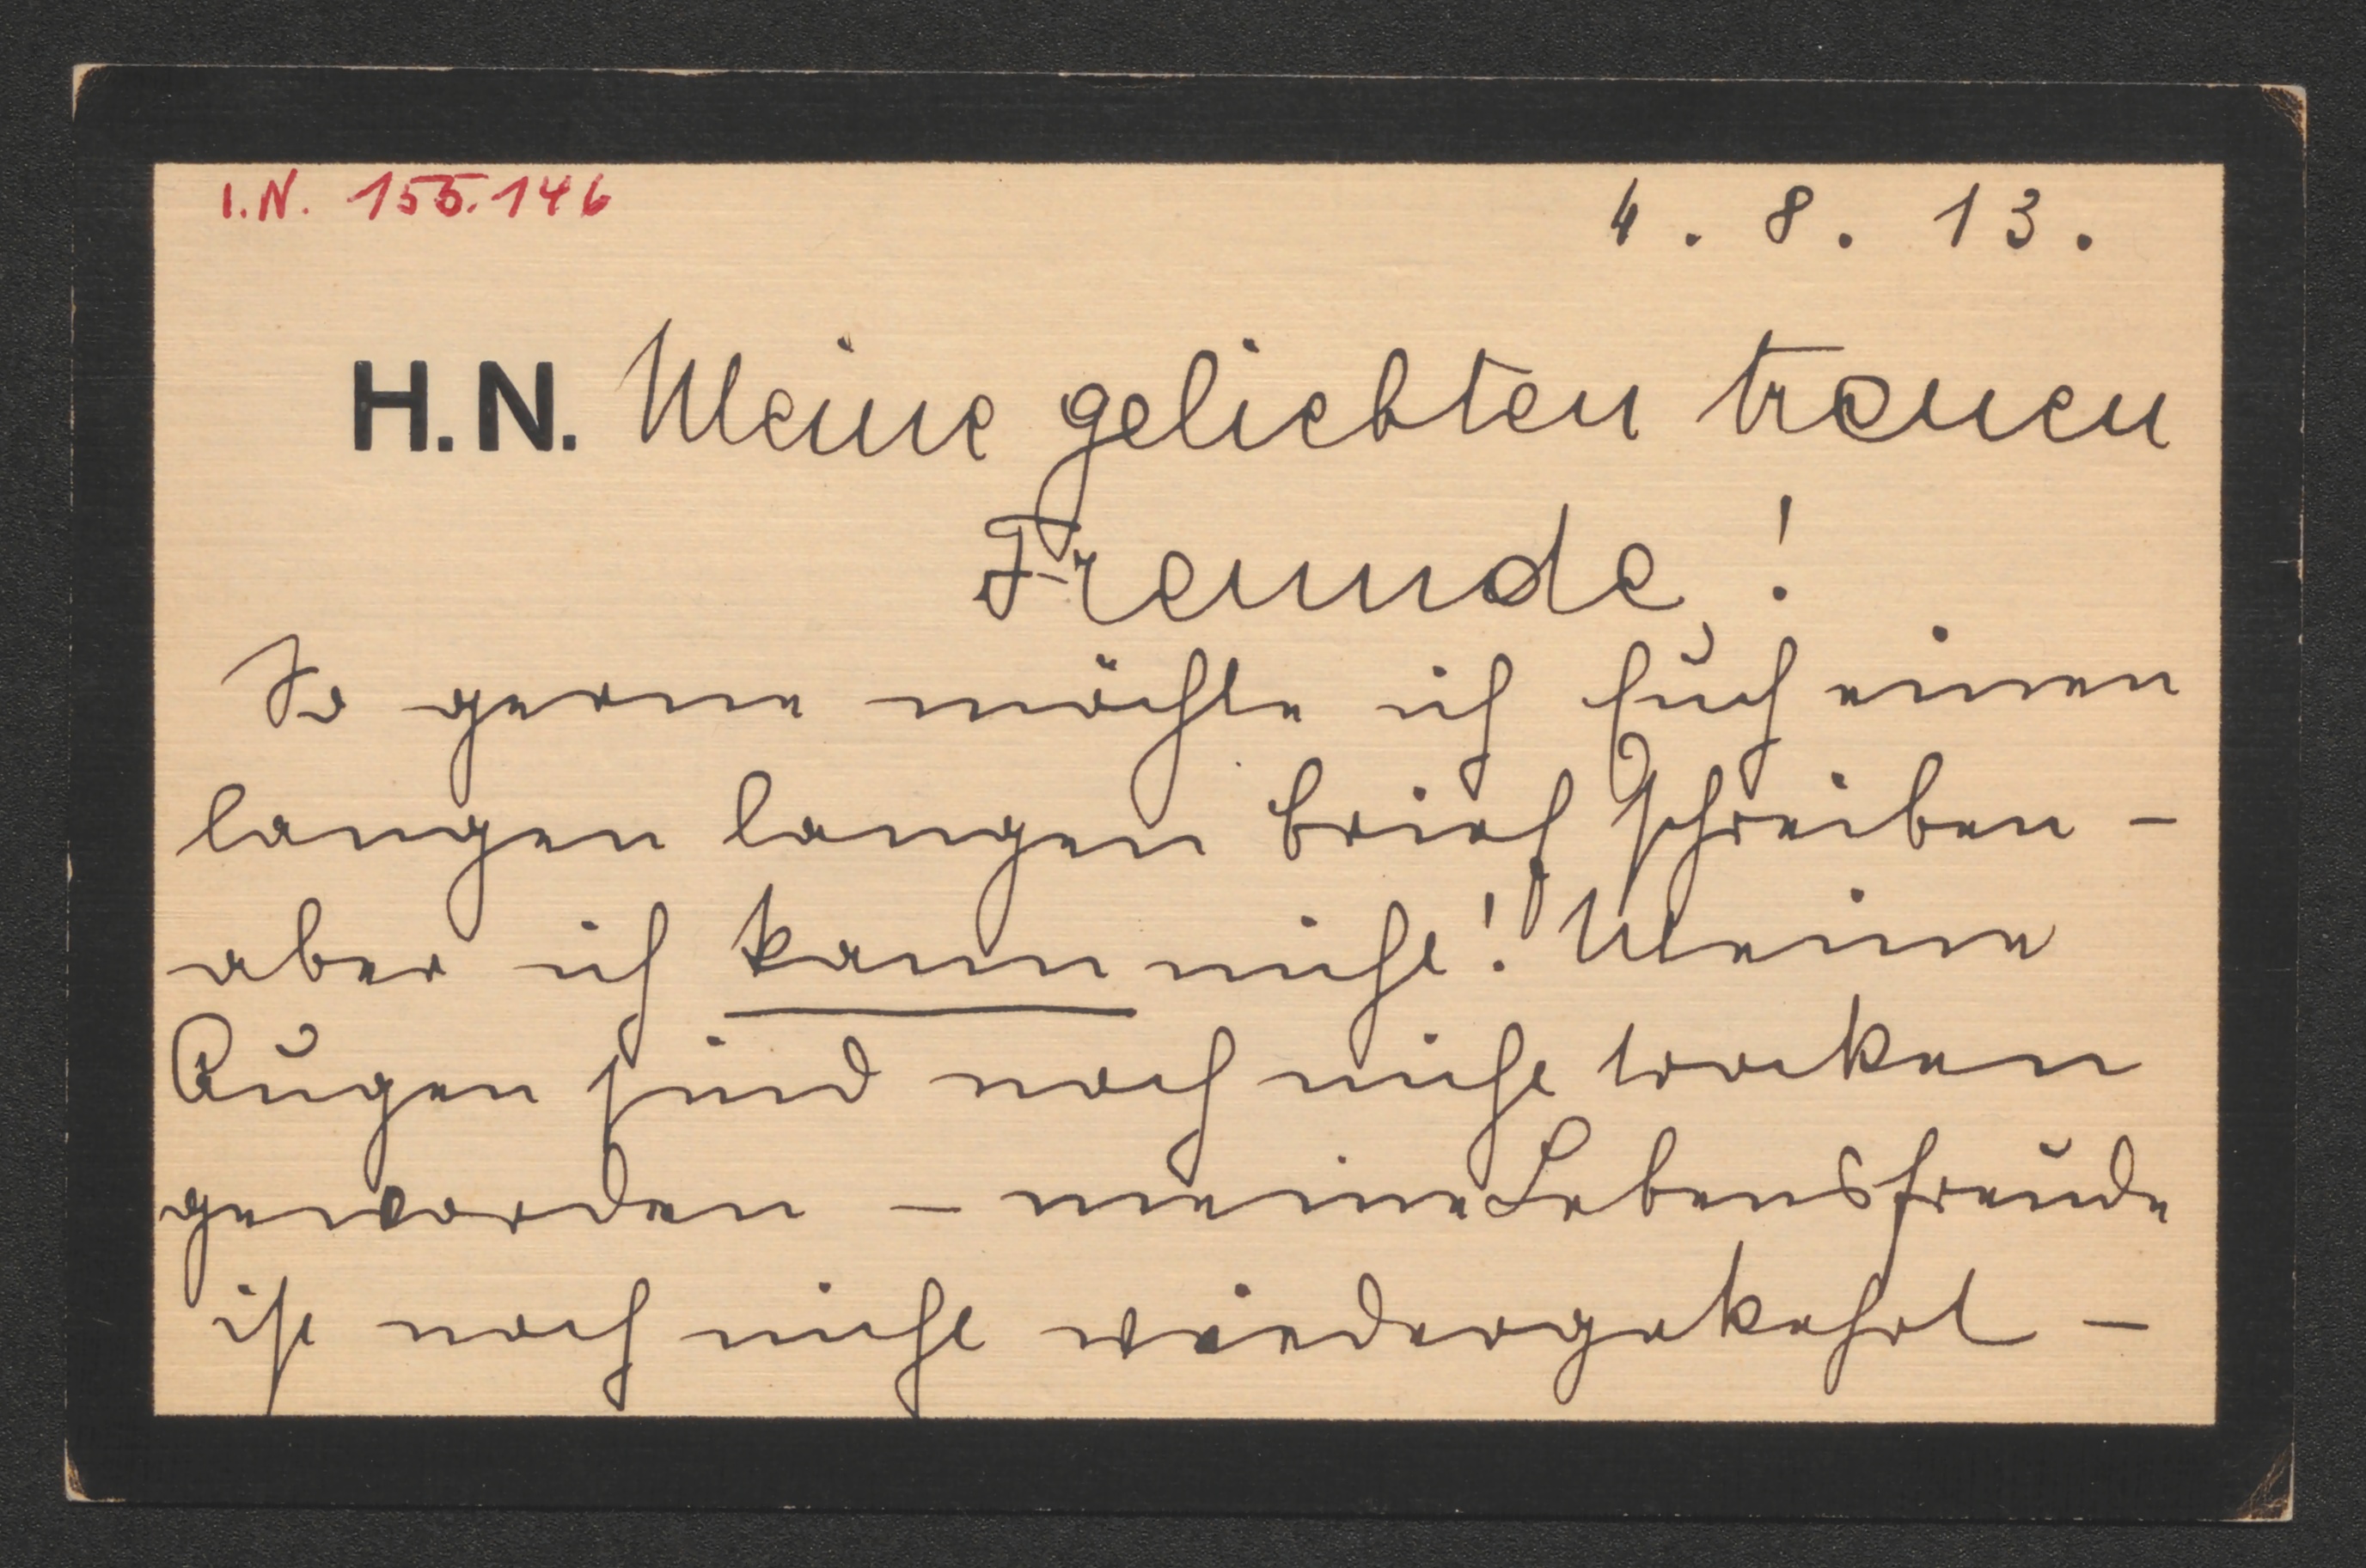 I.N. 155.146
4. 8. 13.
H.N. Meine geliebten treuen
Freunde!
So gerne möchte ich Euch einen
langen langen Brief schreiben –
aber ich kann nicht! Meine
Augen sind noch nicht trocken
geworden – meine Lebensfreude
ist noch nicht wiedergekehrt –